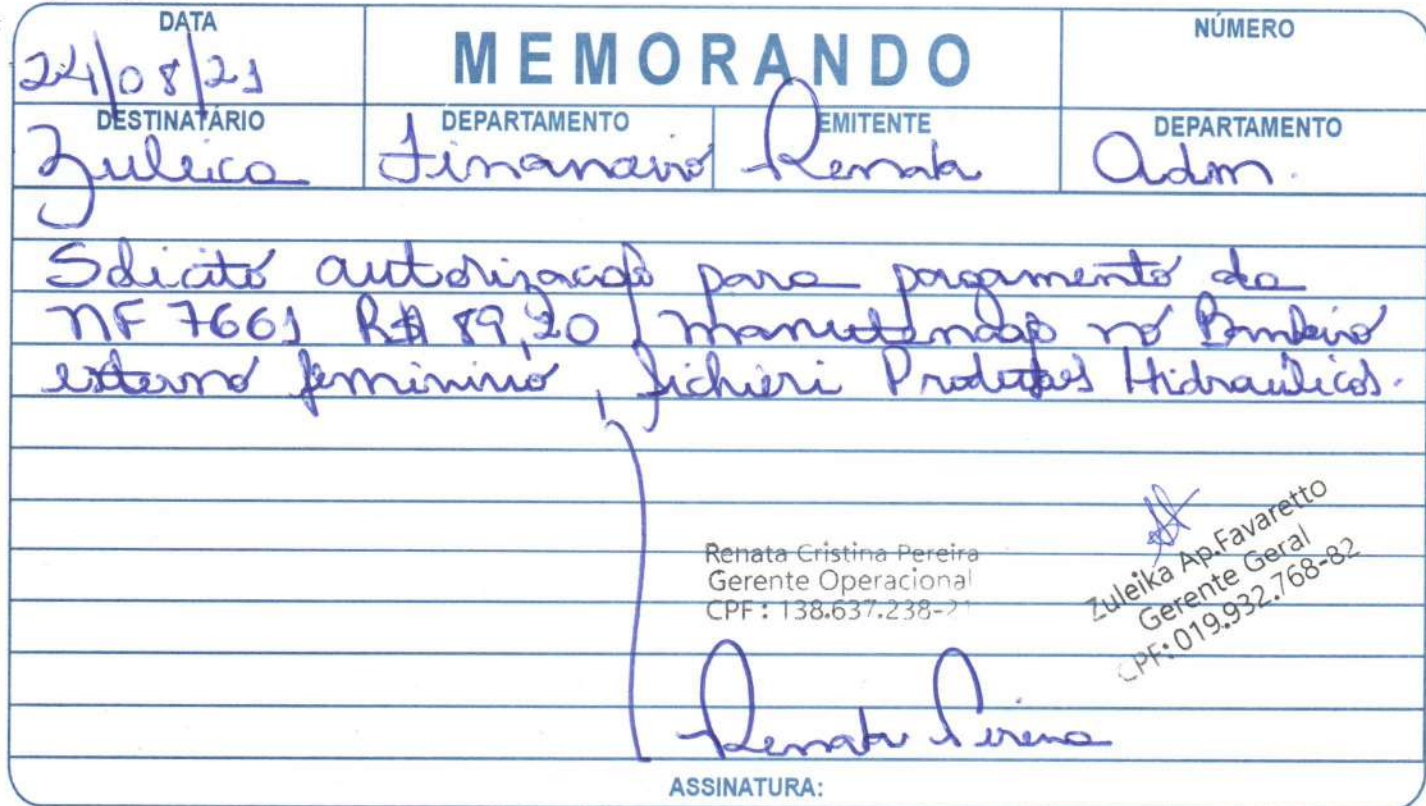 DATA
MEMORANDO
NÚMERO
24/08/21
DESTINATÁRIO
DEPARTAMENTO
EMITENTE
DEPARTAMENTO
Zuleica
Financeiro
Renata
Adm.
Solicito autorização para pagamento da
NF 7661 R$ 89,20, manutenção no Banheiro
externo feminino, Fichieri Produtos Hidraúlicos.
Renata Cristina Pereira
Gerente Operacional
CPF: 138.637.238-21
Zuleika Ap.Favaretto
Gerente Geral
CPF: 019.932.768-82
Renata Pereira
ASSINATURA: